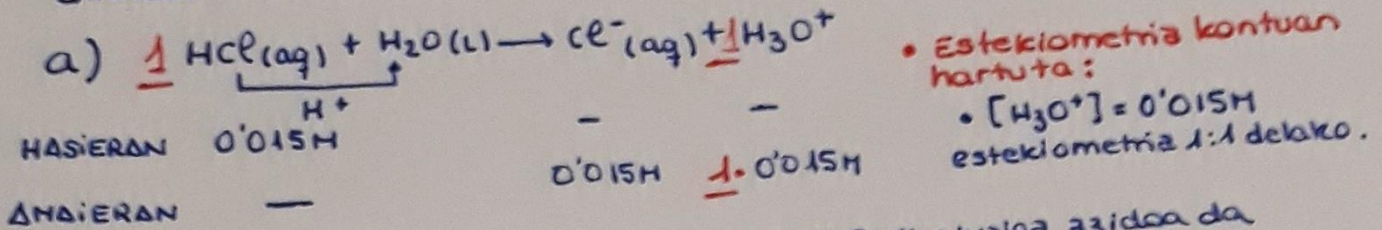 a) 1 HCl(aq) + H₂O(l) → Cl⁻(aq) + 1 H₃O⁺
H⁺
HASIERAN 0'015M – –
AMAIERAN — 0'015M 1·0'015M
• Estekiometria kontuan
hartuta:
• [H₃O⁺] = 0'015M
estekiometria 1:1 delako.
azidoa da